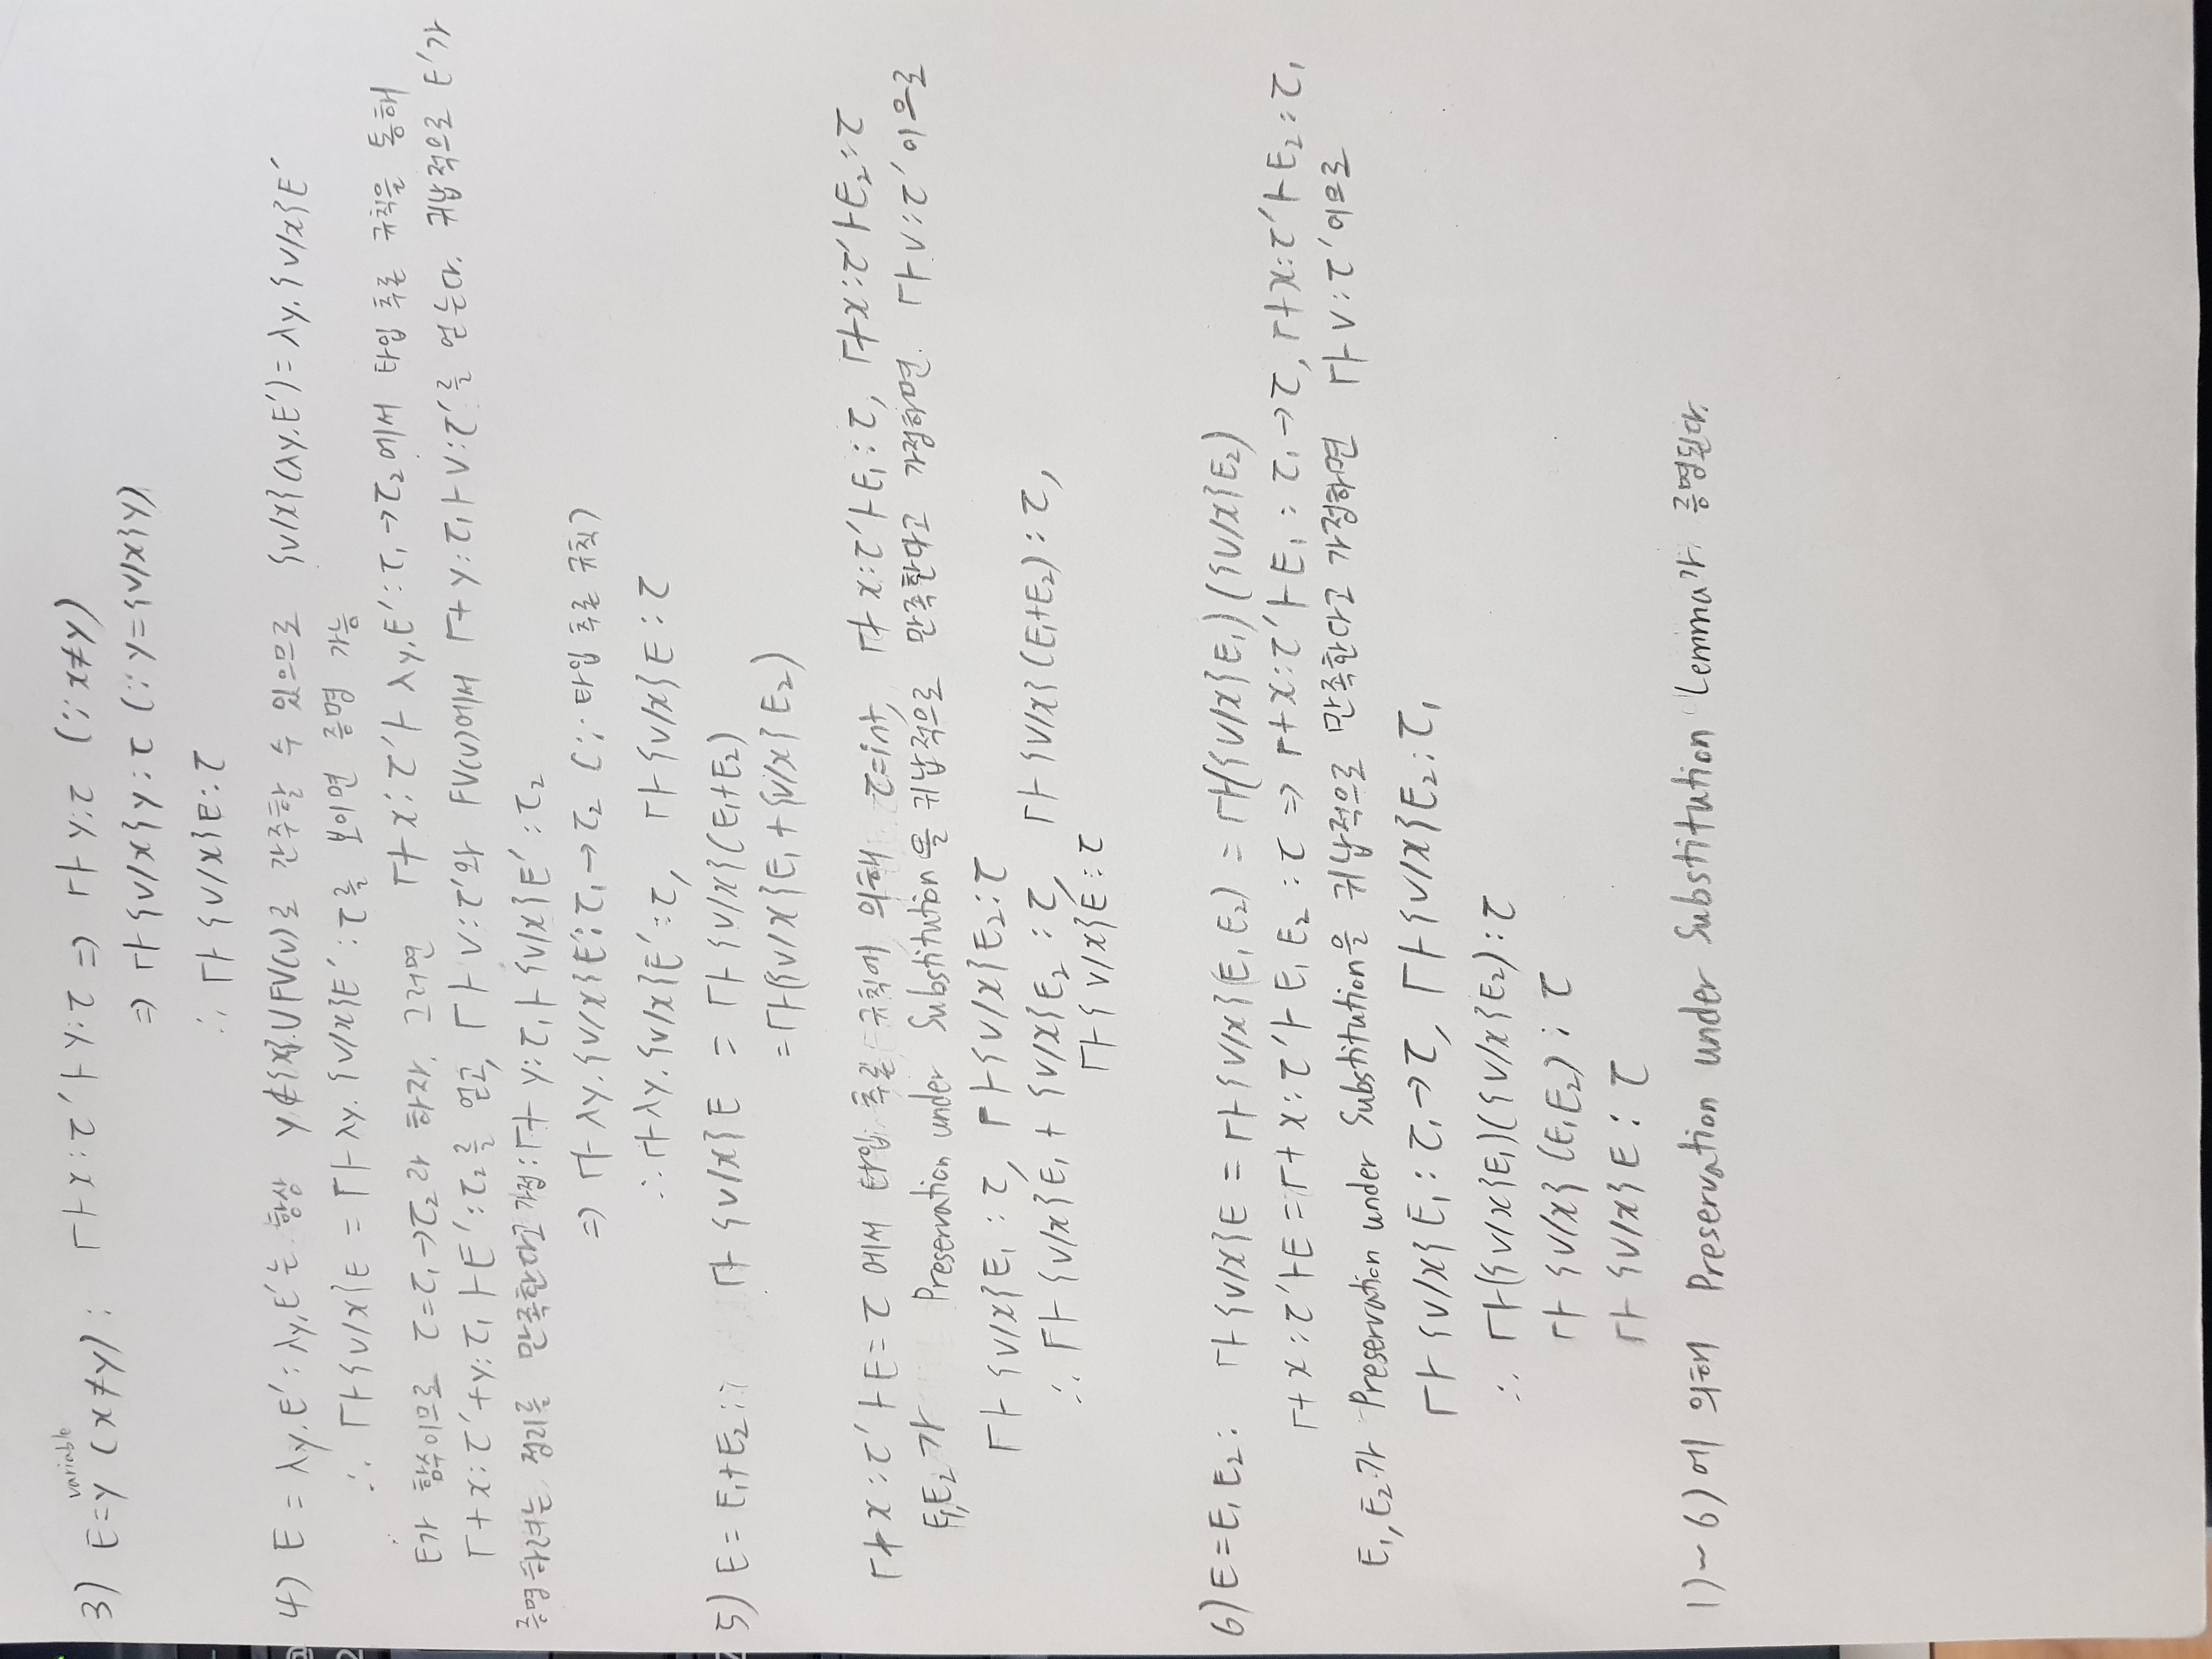 variable
3) E=y (x≠y) : Γ+x:τ'⊢y:τ ⇒ Γ⊢y:τ (∵x≠y)
⇒ Γ⊢{v/x}y:τ (∵y={v/x}y)
∴ Γ⊢{v/x}E:τ
4) E = λy.E' : λy.E'는 항상 y∉{x}∪FV(v)로 간주할 수 있으므로 {v/x}(λy.E')=λy.{v/x}E'
∴ Γ⊢{v/x}E = Γ⊢λy.{v/x}E':τ를 보이면 증명 가능
E가 함수이므로 τ=τ₁→τ₂라 하자. 그러면 Γ+x:τ'⊢λy.E':τ₁→τ₂에서 타입 추론 규칙을 통해
Γ+x:τ'+y:τ₁⊢E':τ₂를 얻고, Γ⊢v:τ'와 FV(v)에서 Γ+y:τ₁⊢v:τ'를 얻는다. 귀납적으로 E'가
증명하려는 정리를 만족한다고 가정:Γ+y:τ₁⊢{v/x}E':τ₂
⇒ Γ⊢λy.{v/x}E':τ₁→τ₂ (∵ 타입 추론 규칙)
∴Γ⊢λy.{v/x}E':τ, Γ⊢{v/x}E:τ
5) E=E₁+E₂ : Γ⊢{v/x}E = Γ⊢{v/x}(E₁+E₂)
=Γ⊢({v/x}E₁+{v/x}E₂)
Γ+x:τ'⊢E=τ 에서 타입 추론 규칙에 의해 τ=int, Γ+x:τ'⊢E₁:τ, Γ+x:τ'⊢E₂:τ
E₁,E₂가 Preservation under Substitution을 귀납적으로 만족한다고 가정하면. Γ⊢v:τ'이므로
Γ⊢{v/x}E₁:τ, Γ⊢{v/x}E₂:τ
∴ Γ⊢{v/x}E₁+{v/x}E₂:τ, Γ⊢{v/x}(E₁+E₂):τ,
Γ⊢{v/x}E:τ
6) E=E₁ E₂: Γ⊢{v/x}E = Γ⊢{v/x}(E₁ E₂) = Γ⊢({v/x}E₁)({v/x}E₂)
Γ+x:τ'⊢E=Γ+x:τ'⊢E₁ E₂:τ ⇒ Γ+x:τ'⊢E₁:τ₁→τ, Γ+x:τ'⊢E₂:τ₁
E₁,E₂가 Preservation under Substitution을 귀납적으로 만족한다고 가정하면 Γ⊢v:τ'이므로
Γ⊢{v/x}E₁:τ₁→τ, Γ⊢{v/x}E₂:τ₁
∴ Γ⊢({v/x}E₁)({v/x}E₂):τ
Γ⊢{v/x}(E₁E₂):τ
Γ⊢{v/x}E:τ
1)~6)에 의해 Preservation under Substitution Lemma가 증명된다.